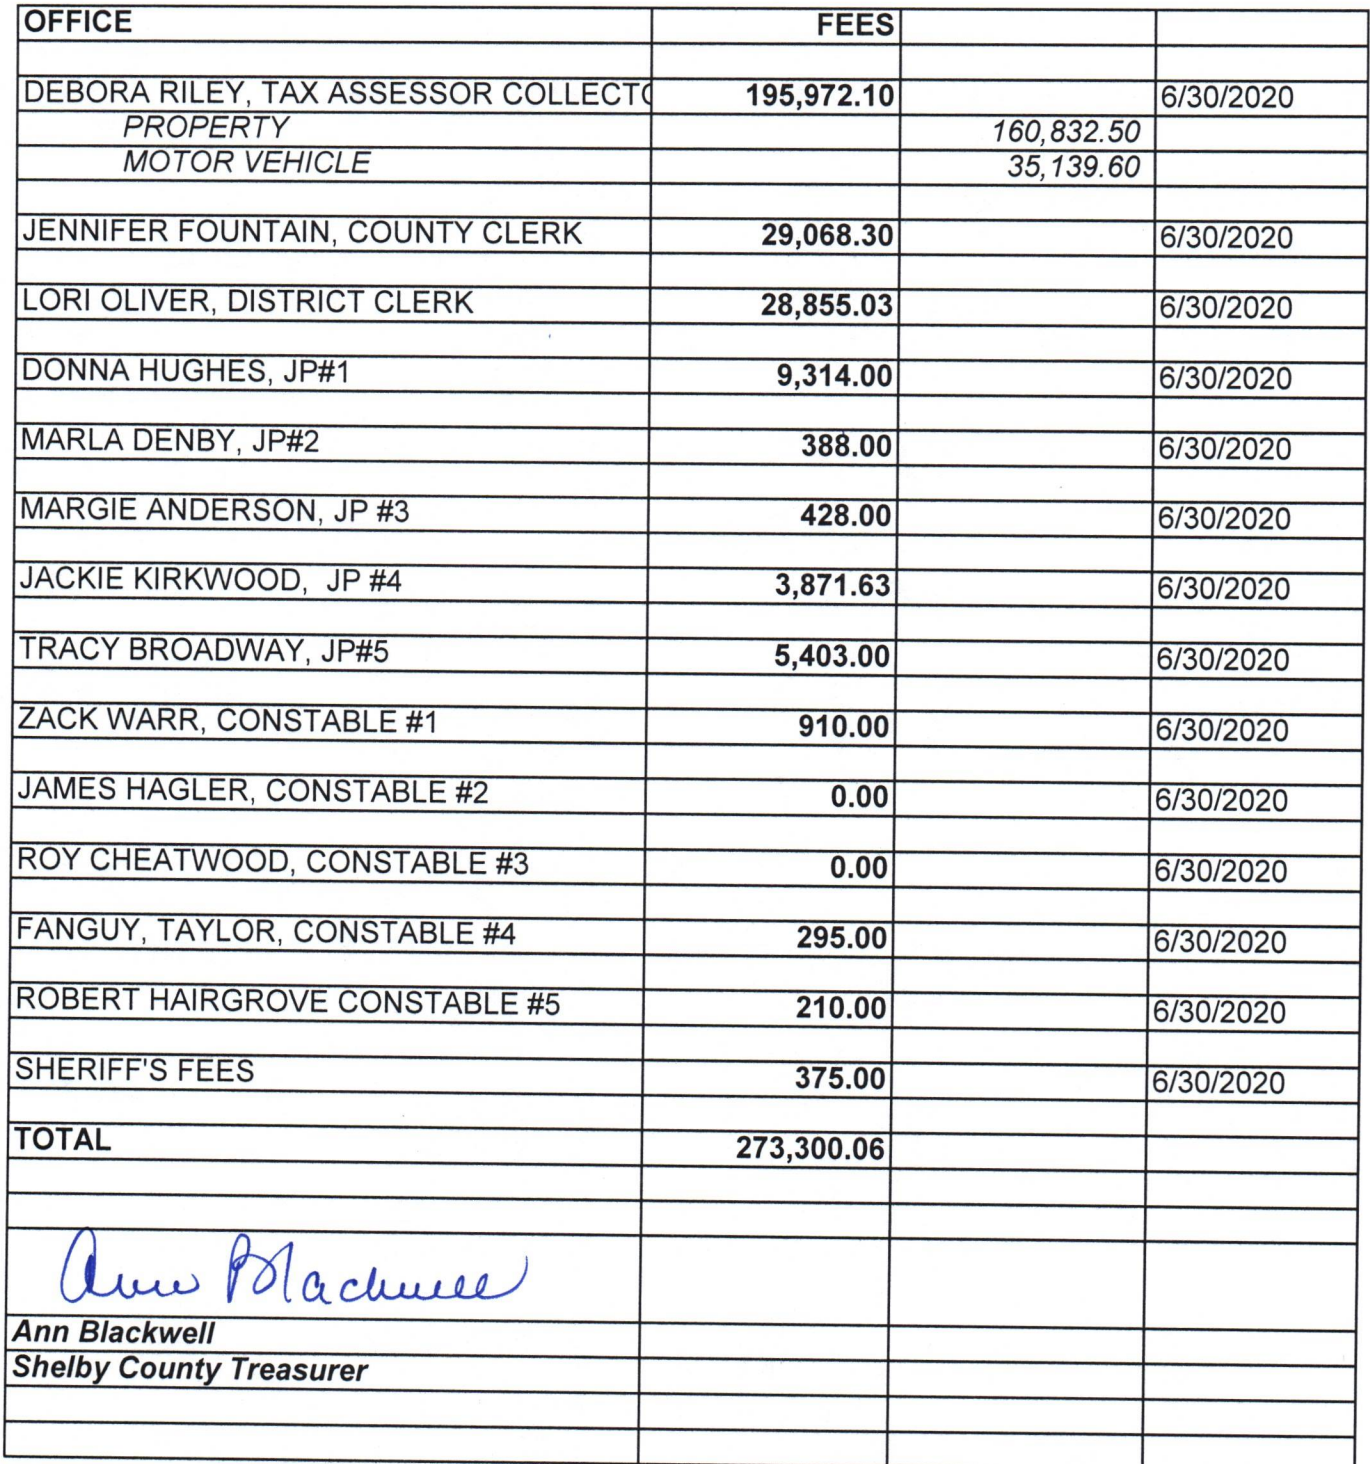 OFFICE FEES
DEBORA RILEY, TAX ASSESSOR COLLECTO 195,972.10 6/30/2020
PROPERTY 160,832.50
MOTOR VEHICLE 35,139.60
JENNIFER FOUNTAIN, COUNTY CLERK 29,068.30 6/30/2020
LORI OLIVER, DISTRICT CLERK 28,855.03 6/30/2020
DONNA HUGHES, JP#1 9,314.00 6/30/2020
MARLA DENBY, JP#2 388.00 6/30/2020
MARGIE ANDERSON, JP #3 428.00 6/30/2020
JACKIE KIRKWOOD, JP #4 3,871.63 6/30/2020
TRACY BROADWAY, JP#5 5,403.00 6/30/2020
ZACK WARR, CONSTABLE #1 910.00 6/30/2020
JAMES HAGLER, CONSTABLE #2 0.00 6/30/2020
ROY CHEATWOOD, CONSTABLE #3 0.00 6/30/2020
FANGUY, TAYLOR, CONSTABLE #4 295.00 6/30/2020
ROBERT HAIRGROVE CONSTABLE #5 210.00 6/30/2020
SHERIFF'S FEES 375.00 6/30/2020
TOTAL 273,300.06
Ann Blackwell
Ann Blackwell
Shelby County Treasurer